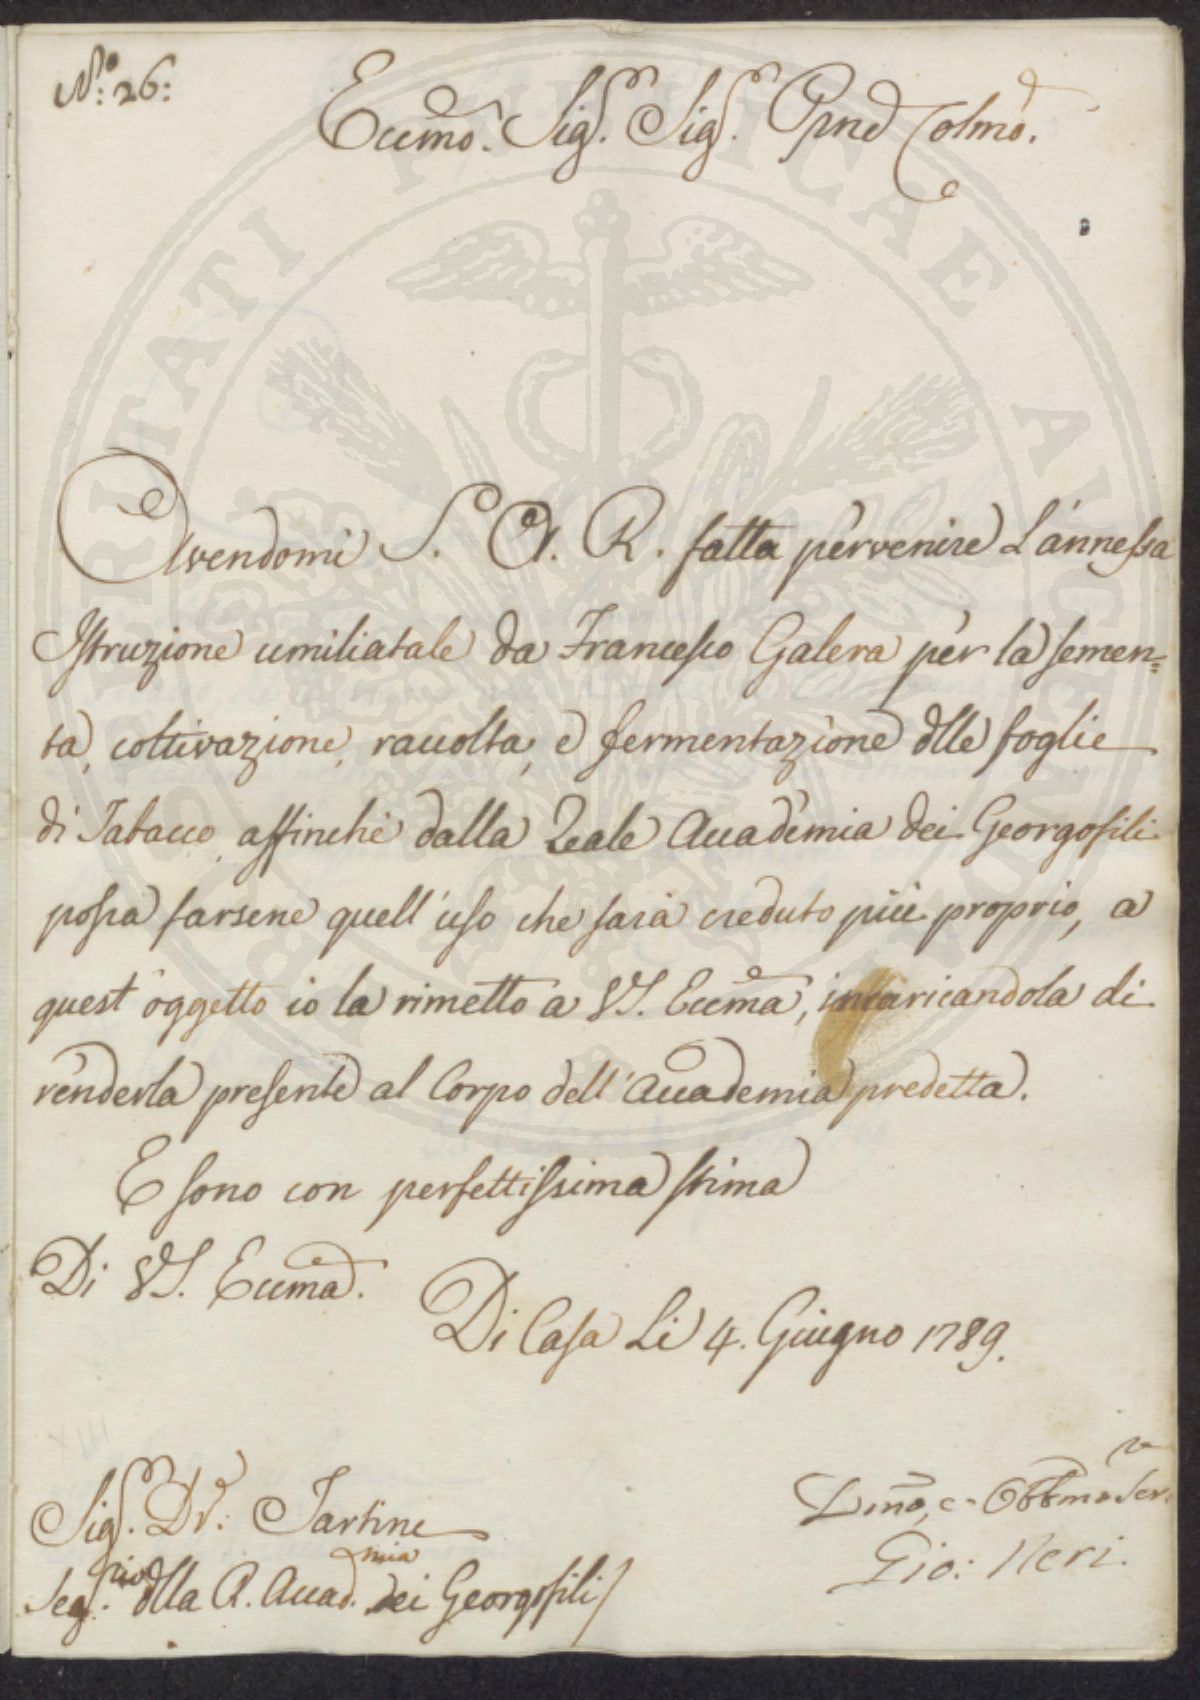 N.º 26:
Eccmo. Sig.r Sig.r Prne Colmo.
Avendomi S. A. R. fatta pervenire L'annessa
Istruzione umiliatale da Francesco Galera per la semen=
ta, coltivazione, raccolta, e fermentazione dlle foglie
di Tabacco, affinchè dalla Reale Accademia dei Georgofili
possa farsene quell'uso che sarà creduto più proprio, a
quest'oggetto io la rimetto a VS. Eccma, incaricandola di
renderla presente al Corpo dell'Accademia predetta.
E sono con perfettissima stima
Di VS. Eccma.
Di Casa Li 4. Giugno 1789.
Sig.r Dr. Tartine
Seg.rio dlla R. Accad.mia dei Georgofili
Dmo, e Obbmo Ser.re
Gio: Neri.
SPERITATI PUBLICAE AUGENDAE